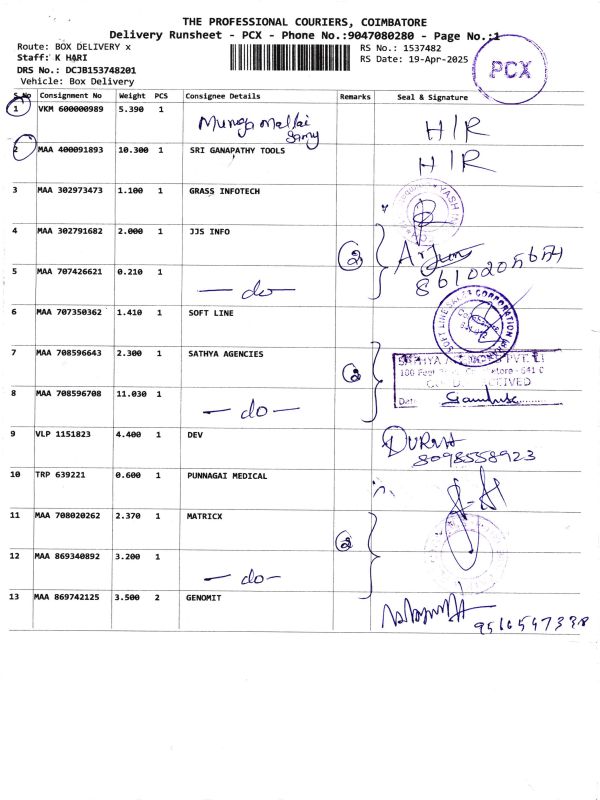 THE PROFESSIONAL COURIERS, COIMBATORE
Delivery Runsheet - PCX - Phone No.:9047080280 - Page No.:1
Route: BOX DELIVERY x RS No.: 1537482
Staff: K HARI RS Date: 19-Apr-2025
DRS No.: DCJB153748201
Vehicle: Box Delivery
PCX
S.No Consignment No Weight PCS Consignee Details Remarks Seal & Signature
1 VKM 600000989 5.390 1 H/R
2 MAA 400091893 10.300 1 SRI GANAPATHY TOOLS H/R
3 MAA 302973473 1.100 1 GRASS INFOTECH
4 MAA 302791682 2.000 1 JJS INFO 2 Arjun
5 MAA 707426621 0.210 1 — do —
6 MAA 707350362 1.410 1 SOFT LINE
7 MAA 708596643 2.300 1 SATHYA AGENCIES 2
8 MAA 708596708 11.030 1 — do —
9 VLP 1151823 4.400 1 DEV
8098558923
10 TRP 639221 0.600 1 PUNNAGAI MEDICAL
11 MAA 708020262 2.370 1 MATRICX 2
12 MAA 869340892 3.200 1 — do —
13 MAA 869742125 3.500 2 GENOMIT